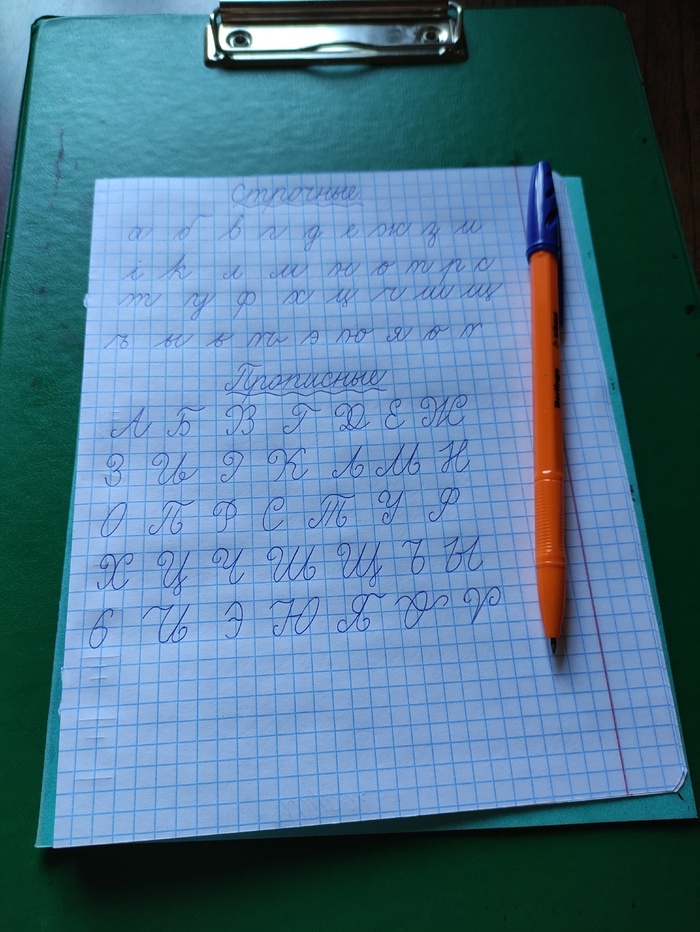 Строчные
а б в г д е ж з и
і к л м н о п р с
т у ф х ц ч ш щ
ъ ы ь ѣ э ю я ѳ ѵ
Прописные
А Б В Г Д Е Ж
З И І К Л М Н
О П Р С Т У Ф
Х Ц Ч Ш Щ Ъ Ы
Ь Ѣ Э Ю Я Ѳ Ѵ